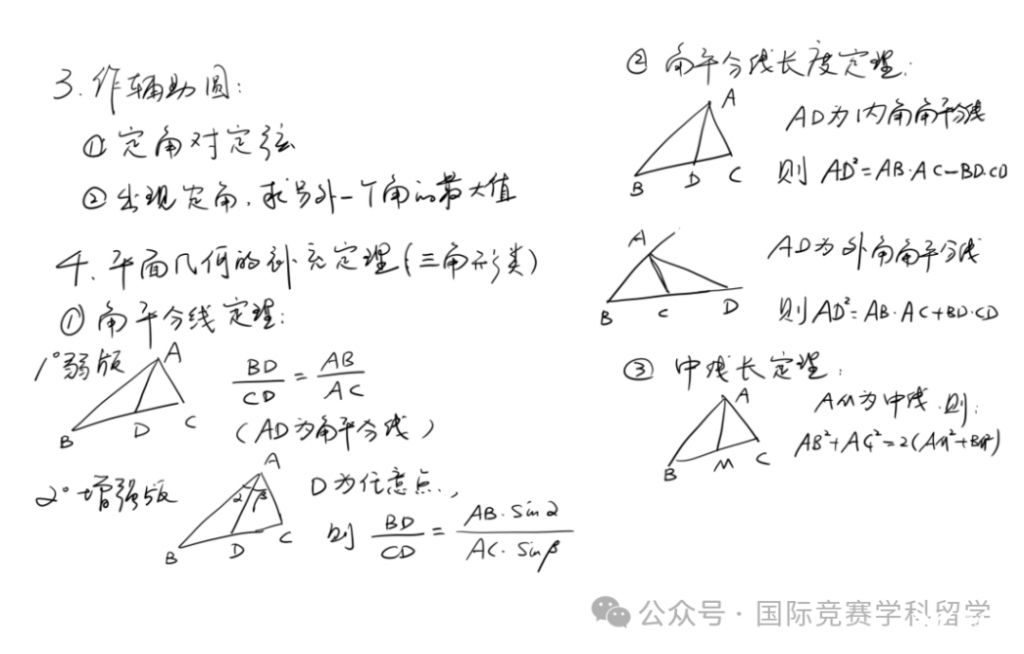 3.作辅助圆:
①定角对定弦
②出现定角,求另外一个角的最大值
4.平面几何的补充定理(三角形类)
①角平分线定理:
1°弱版
A
B
D
C
BD/CD = AB/AC
(AD为角平分线)
2°增强版
A
α β
B
D
C
D为任意点,
则 BD/CD = AB·sinα/AC·sinβ
②角平分线长度定理:
A
B
D
C
AD为内角角平分线
则 AD²=AB·AC-BD·CD
A
B
C
D
AD为外角角平分线
则AD²=AB·AC+BD·CD
③中线长定理:
A
B
M
C
AM为中线,则:
AB²+AC²=2(AM²+BM²)
公众号·国际竞赛学科留学